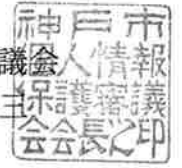 議会
三
神戸市
個人情報
保護審議
会会長之印